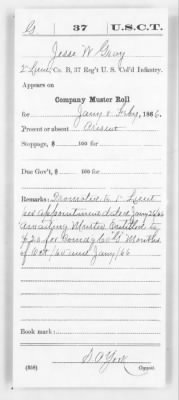 G | 37 | U.S.C.T.
Jesse W Govy
2 Lieut, Co. B, 37 Reg't U. S. Col'd Infantry.
Appears on
Company Muster Roll
for Jany & Feby, 1866.
Present or absent Present
Stoppage, $ 100 for
Due Gov't, $ 100 for
Remarks: Promoted to 1st Lieut
per appointment dated Jany 26/66
awaiting Muster Entitled to
$20 for Comdg Co "G" Months
of Oct /65 and Jany /66
Book mark:
S. A. York
(358) Copyist.